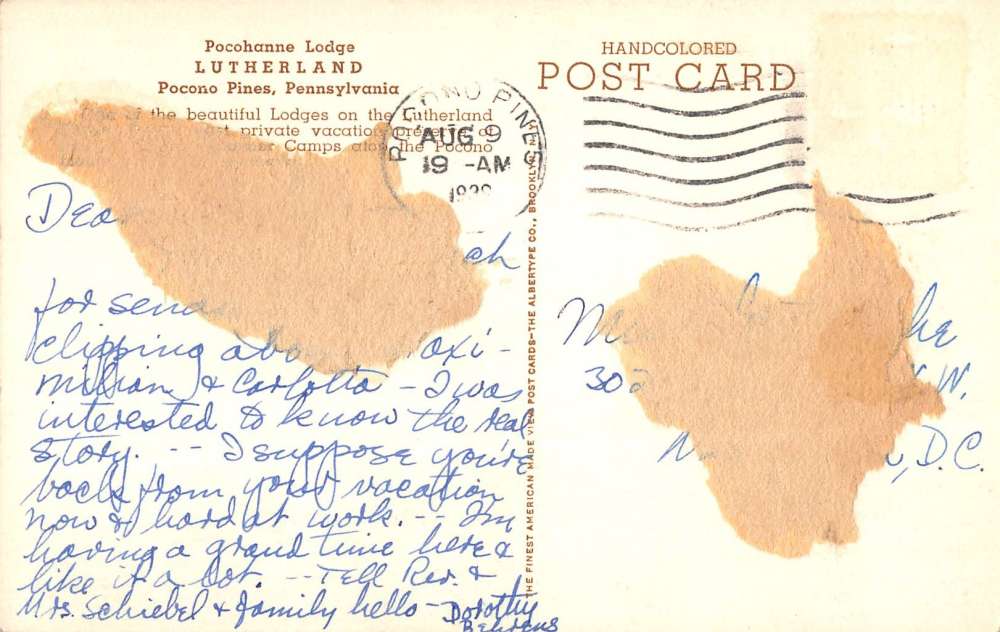 Pocohanne Lodge
LUTHERLAND
Pocono Pines, Pennsylvania
of the beautiful Lodges on the Lutherland
private vacation preserve of
Camps atop the Pocono
POCONO PINES
AUG 9
19 -AM
HANDCOLORED
POST CARD
THE FINEST AMERICAN MADE VIEW POST CARDS—THE ALBERTYPE CO., BROOKLYN, N.Y.
Dea
ch
for send
clipping abo oxi-
milian & Carlotta - I was
interested to know the real
story. -- I suppose you're
back from your vacation
now & hard at work. -- I'm
having a grand time here &
like it a lot. -- Tell Rev. &
Mrs. Schiebel & family hello -
Dorothy
Behrens
M he
30 W.
D.C.